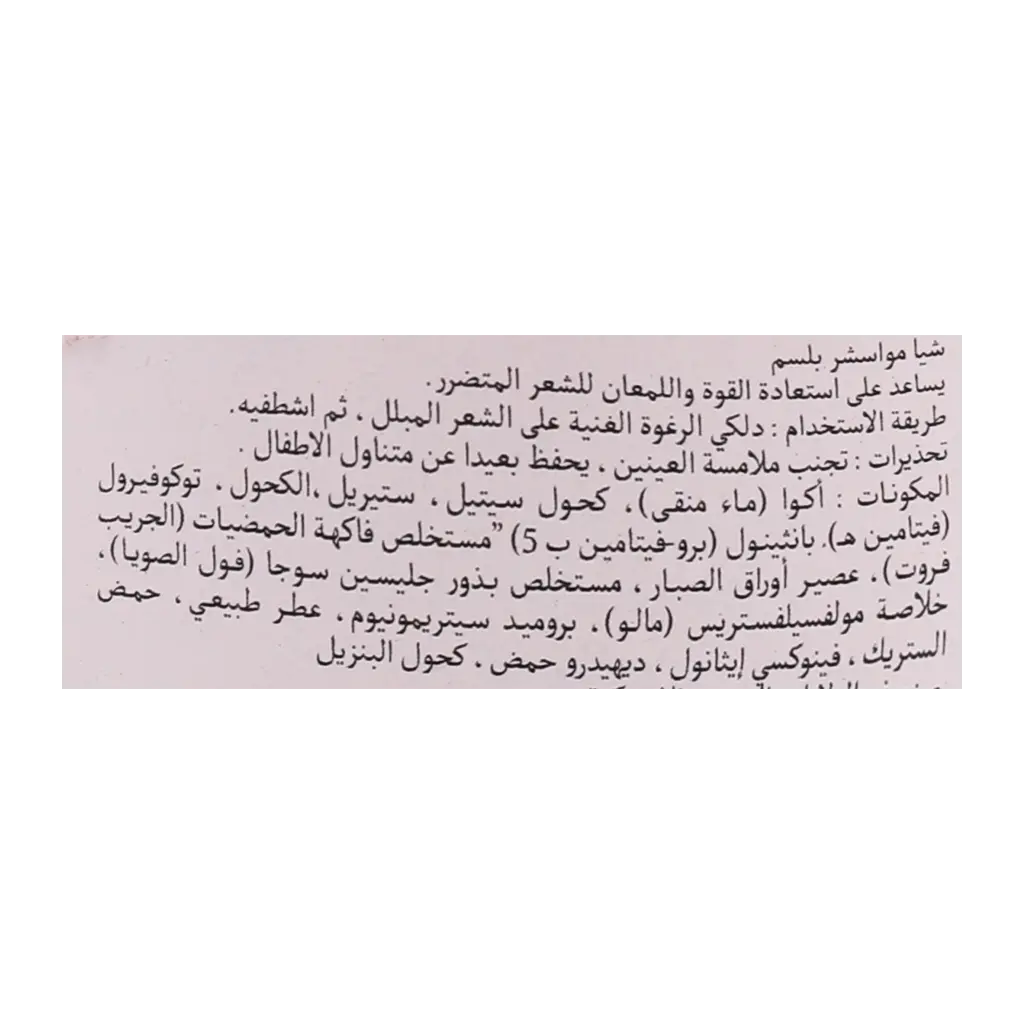 شيا مواسشر بلسم
يساعد على استعادة القوة واللمعان للشعر المتضرر.
طريقة الاستخدام : دلكي الرغوة الغنية على الشعر المبلل ، ثم اشطفيه.
تحذيرات : تجنب ملامسة العينين ، يحفظ بعيدا عن متناول الاطفال .
المكونات : أكوا (ماء منقى)، كحول سيتيل ، ستيريل ،الكحول ، توكوفيرول
(فيتامين هـ). بانثينول (برو-فيتامين ب 5) ”مستخلص فاكهة الحمضيات (الجريب
فروت)، عصير أوراق الصبار ، مستخلص بذور جليسين سوجا (فول الصويا)،
خلاصة مولفسيلفستريس (مالو)، بروميد سيتريمونيوم، عطر طبيعي ، حمض
الستريك ، فينوكسي إيثانول ، ديهيدرو حمض ، كحول البنزيل